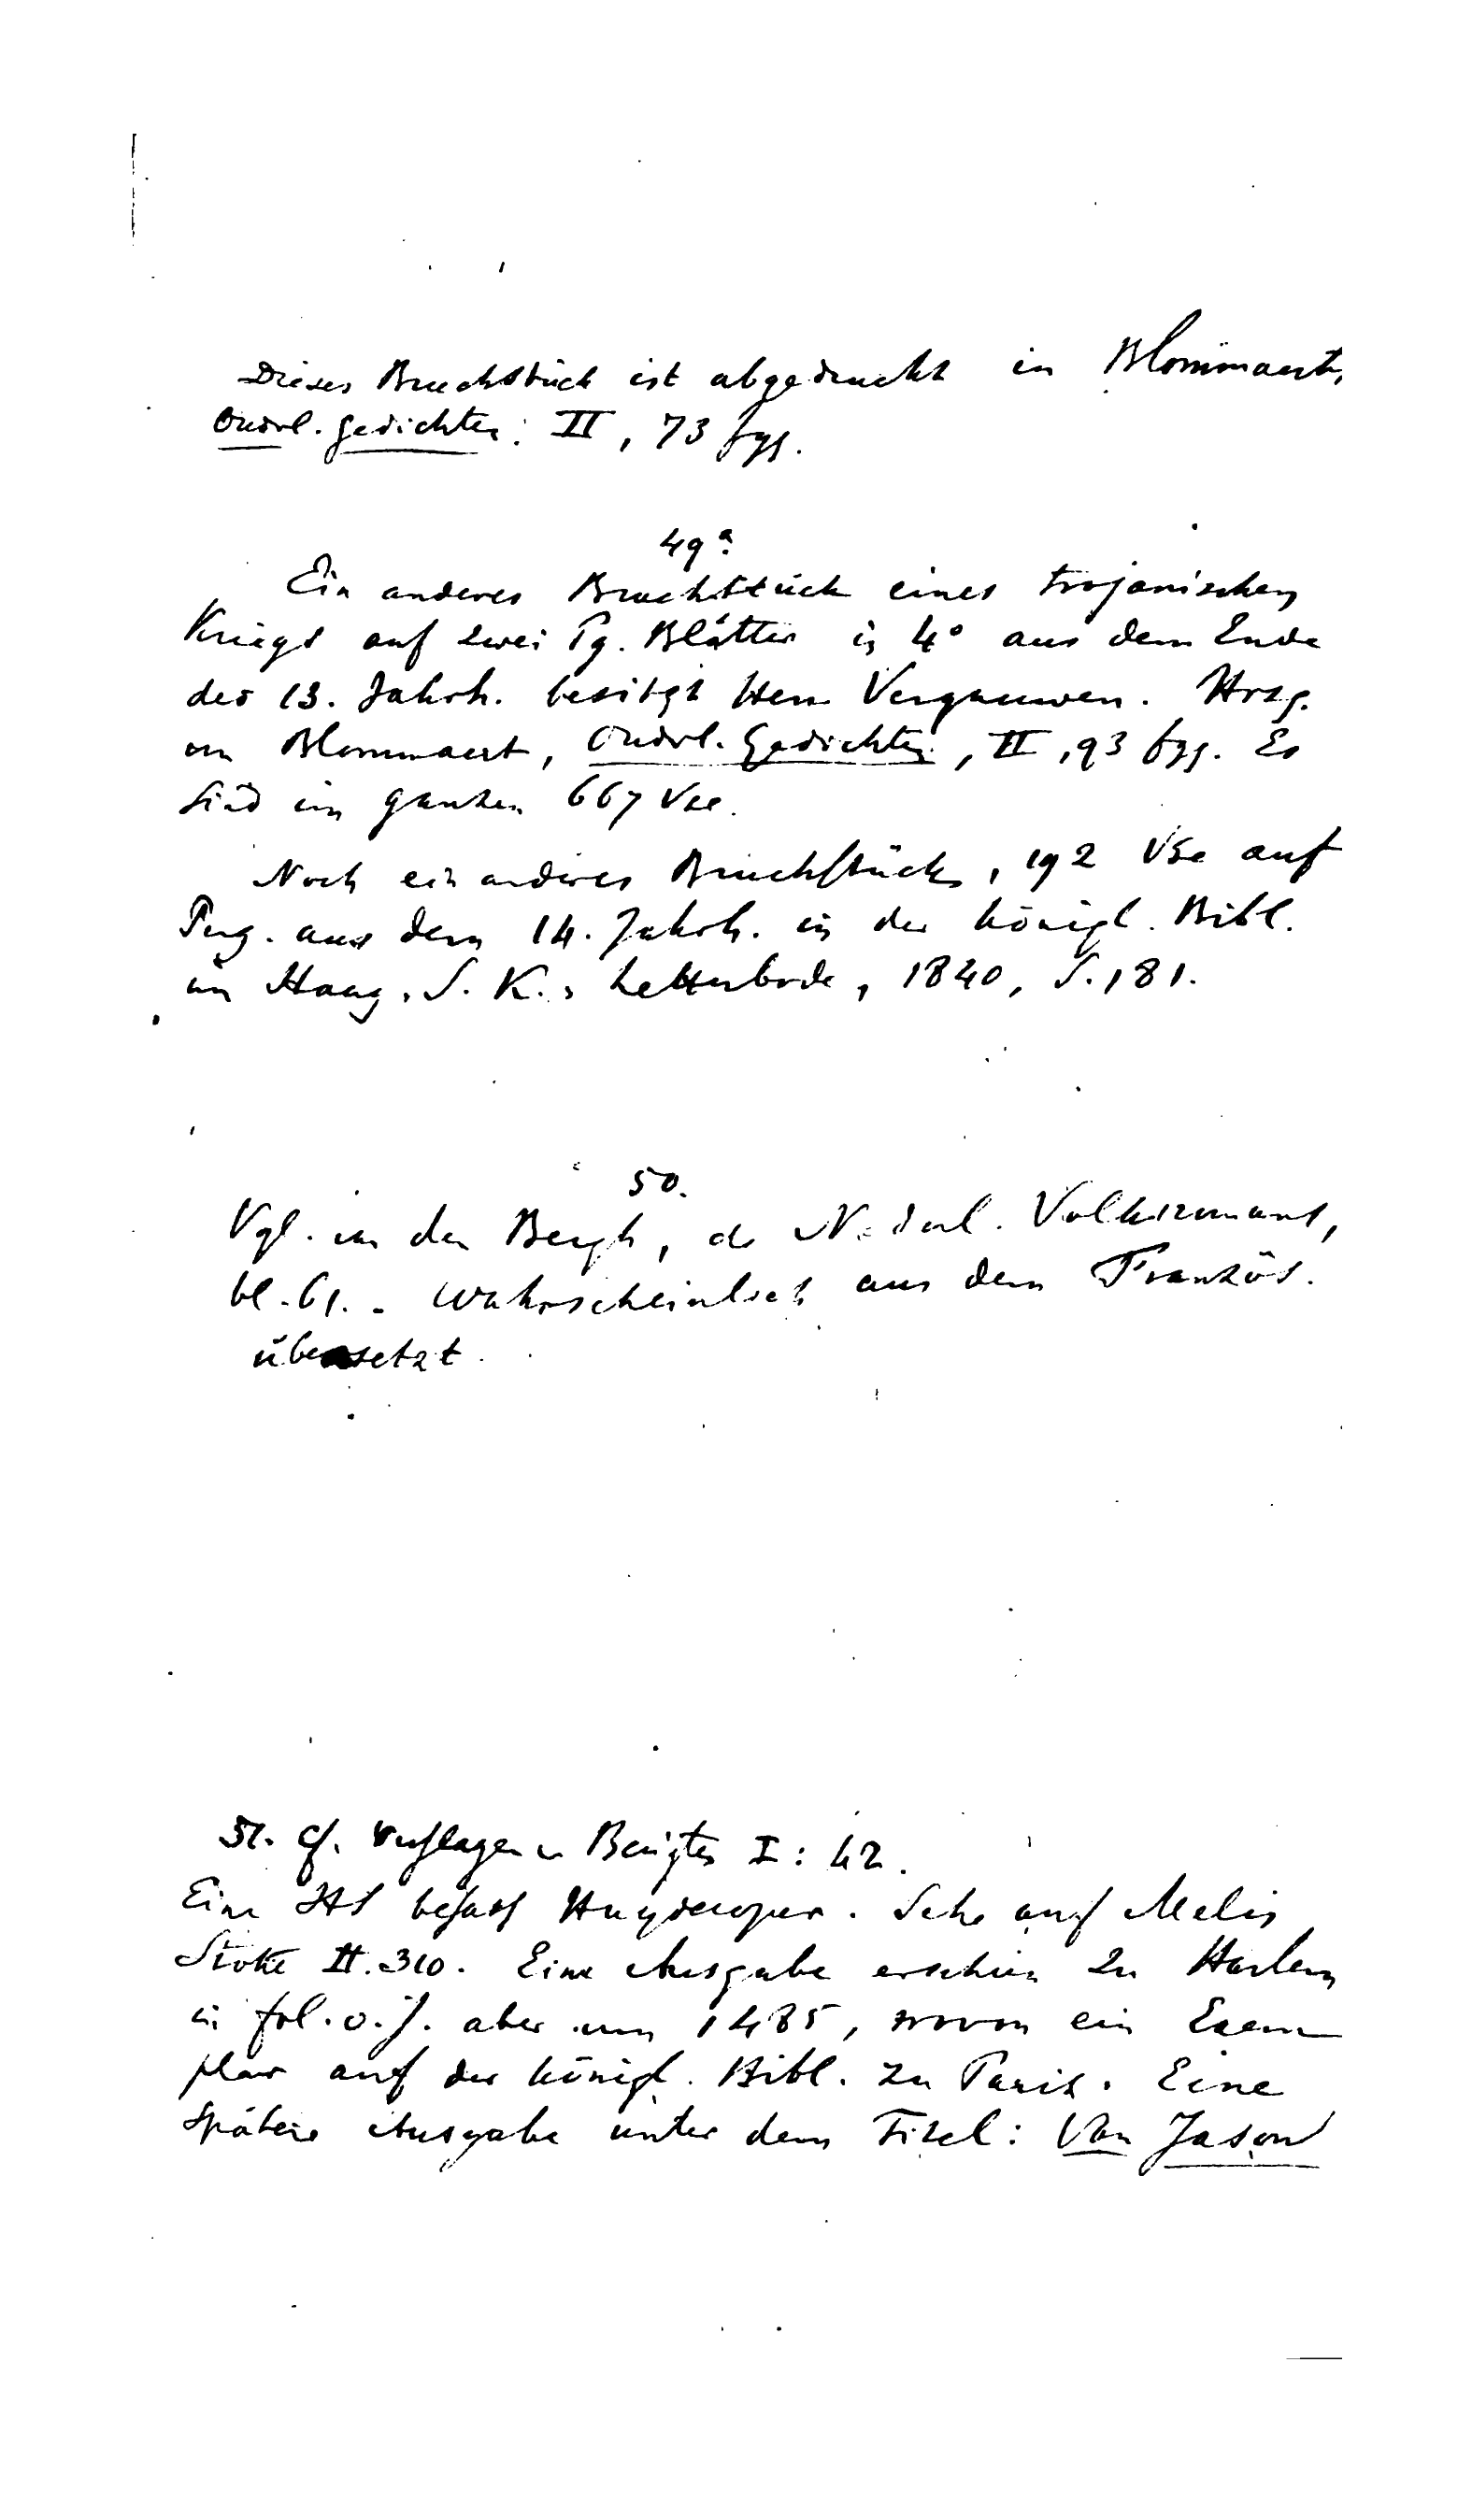 Dieses Bruchstück ist abgedruckt in Blommaert,
Oudvl. gedichten: II, 73 fgg.
49ª.
Ein anderes Bruchstück eines trojanischen
Kriegs auf zwei Pg. Blätter in 4° aus dem Ende
des 13. Jahrh. besitzt Herr Vergauwen. Hrsg.
von Blommaert, Oudvl. Gedichten, II, 93 fgg. Es
sind im ganzen 667 Vse.
Noch ein anderes Bruchstück, 192 Vse auf
Perg. aus dem 14. Jahrh. in der königl. Bibl.
im Haag. S. K. Letterbode, 1840, S. 181.
50.
Vgl. van den Bergh, de Nederl. Volksromans,
bl. 61. - Wahrscheinlich aus dem Französ.
übersetzt.
51. cf. Verslagen en Berigten I: 42.
Eine HS besass Huydecoper. Sehe auf Melis
Stoke II. 310. Eine Ausgabe erschien zu Harlem
in fol. o. J. aber um 1485, wovon ein Exem
plar auf der königl. Bibl. zu Paris. Eine
spätere Ausgabe unter dem Titel: Van Jason